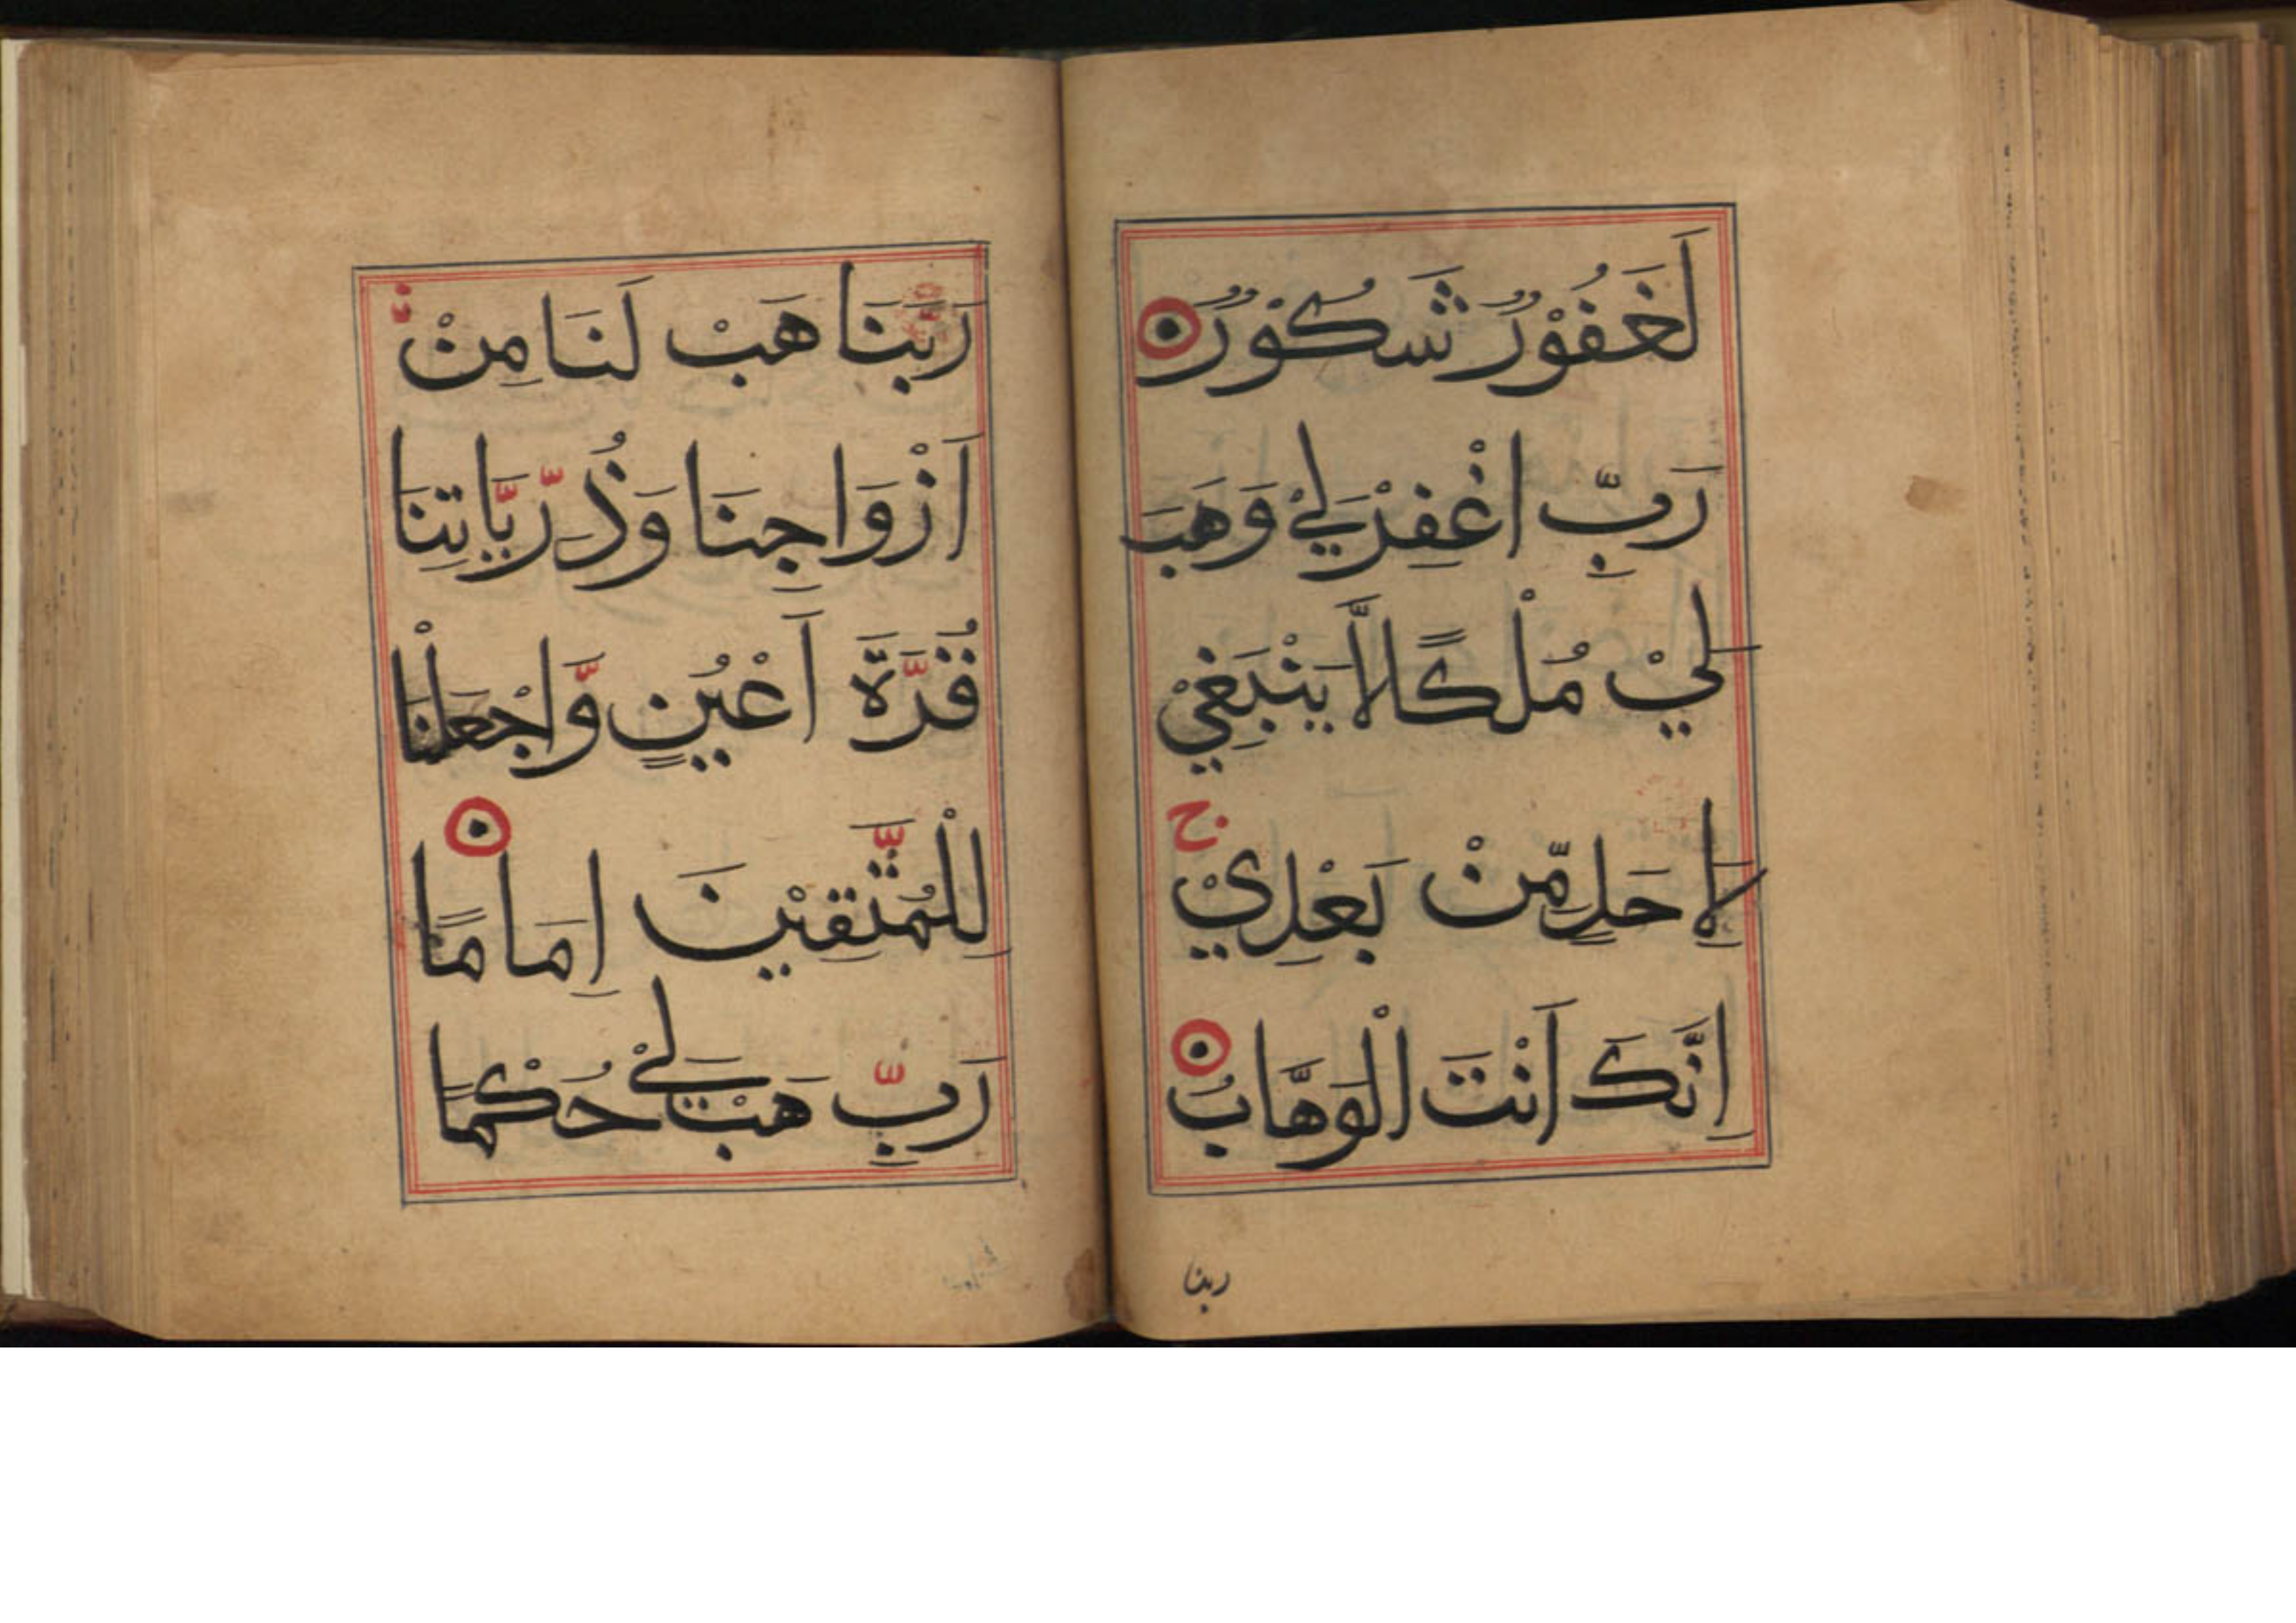 لَغَفُوْرٌ شَكُوْرٌ
رَبِّ اغْفِرْلِيْ وَهَبْ
لِيْ مُلْكًا لَّا يَنْبَغِيْ
لِاَحَدٍ مِّنْ بَعْدِيْ ج
اِنَّكَ اَنْتَ الْوَهَّابُ
ربنا
رَبَّنَا هَبْ لَنَا مِنْ
اَزْوَاجِنَا وَذُرِّيَّاتِنَا
قُرَّةَ اَعْيُنٍ وَّاجْعَلْنَا
لِلْمُتَّقِيْنَ اِمَامًا
رَبِّ هَبْ لِيْ حُكْمًا